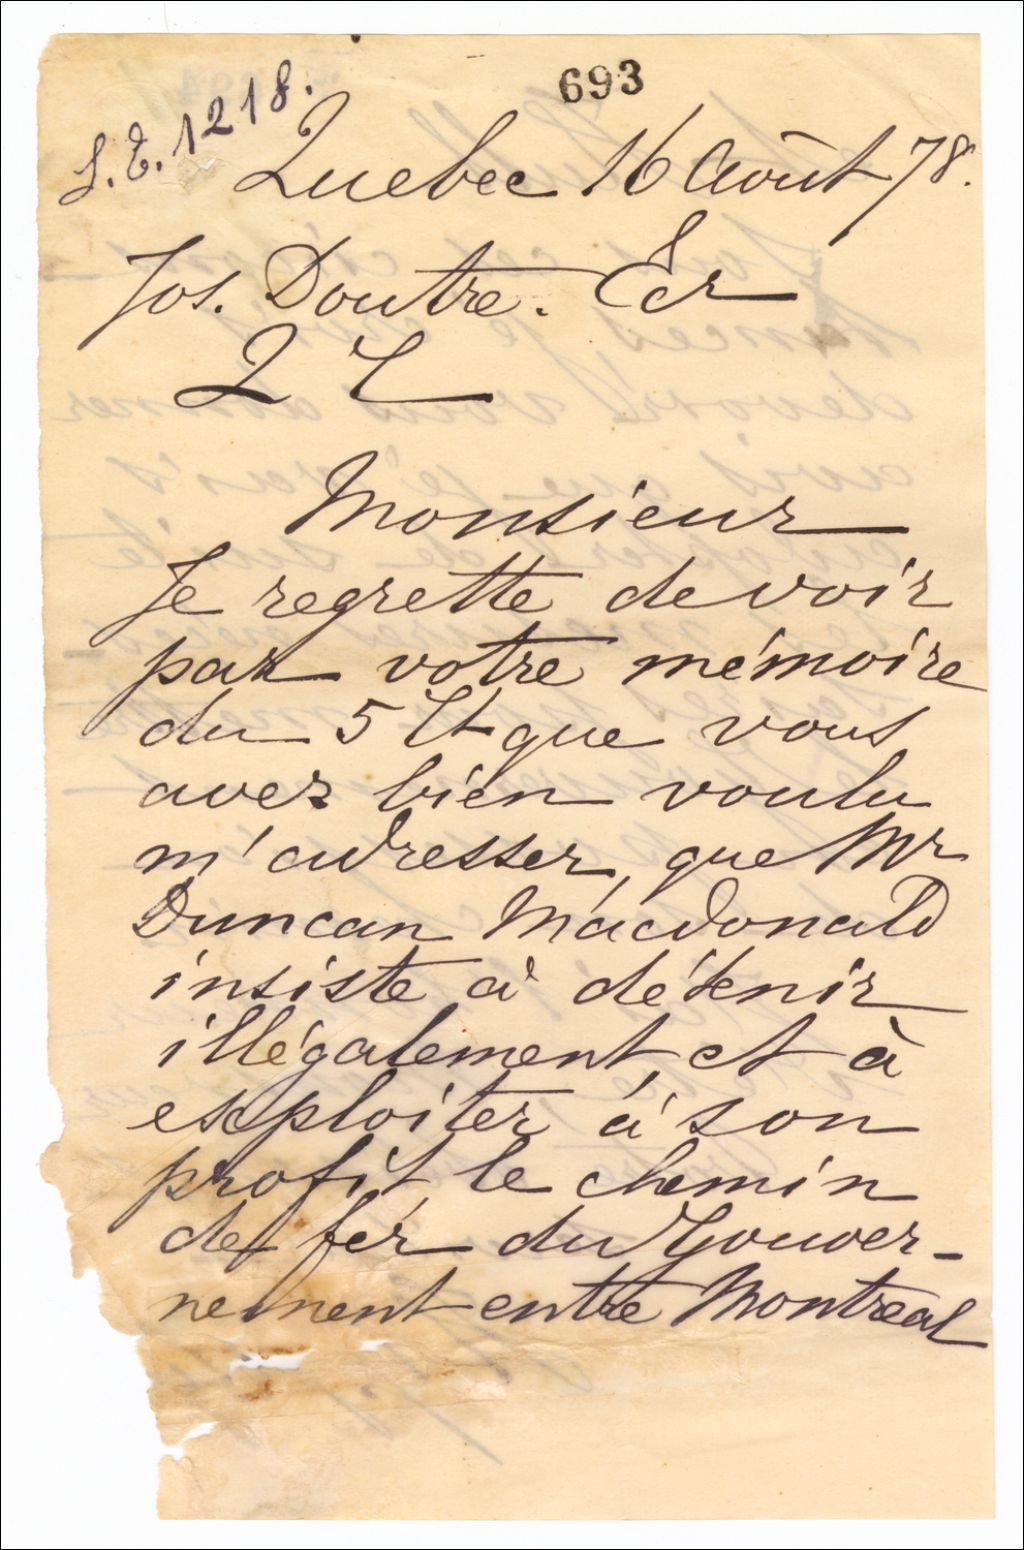 693
J. E. 1218.
Quebec 16 Août 78.
Jos. Doutre. Ecr
Q C
Monsieur
Je regrette de voir
par votre mémoire
du 5 Ct que vous
avez bien voulu
m'adresser, que Mr
Duncan Macdonald
insiste à détenir
illégalement, et à
exploiter à son
profit, le chemin
de fer du Gouver-
nement entre Montreal